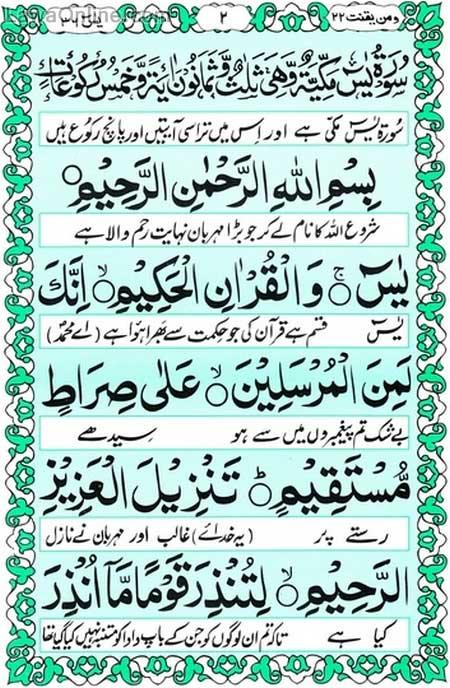 ومن یقنت ۲۲
۲
یٰسٓ ۳۶
سُوْرَةُ يٰسٓ مَكِّيَّةٌ وَّهِيَ ثَلٰثٌ وَّثَمَانُوْنَ اٰيَةً وَّخَمْسُ رُكُوْعَاتٍ
سورۃ یٰسٓ مکی ہے اور اس میں تراسی آیتیں اور پانچ رکوع ہیں
بِسْمِ اللهِ الرَّحْمٰنِ الرَّحِيْمِ ○
شروع اللہ کا نام لے کر جو بڑا مہربان نہایت رحم والا ہے
يٰسٓ ○ۚ وَالْقُرْاٰنِ الْحَكِيْمِ ○ۙ اِنَّكَ
یٰسٓ قسم ہے قرآن کی جو حکمت سے بھرا ہوا ہے (اے محمدؐ)
لَمِنَ الْمُرْسَلِيْنَ ○ۙ عَلٰى صِرَاطٍ
بے شک تم پیغمبروں میں سے ہو سیدھے
مُّسْتَقِيْمٍ ○ؕ تَنْزِيْلَ الْعَزِيْزِ
رستے پر (یہ خدائے) غالب اور مہربان نے نازل
الرَّحِيْمِ ○ۙ لِتُنْذِرَ قَوْمًا مَّآ اُنْذِرَ
کیا ہے تاکہ تم ان لوگوں کو جن کے باپ دادا کو متنبہ نہیں کیا گیا تھا